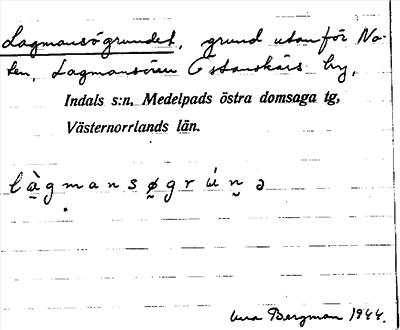 Lagmansögrundet, grund utanför Na-
ken, Lagmansören Östanskärs by,
Indals s:n, Medelpads östra domsaga tg,
Västernorrlands län.
làgmansøgrúnə
Bergman 1944.